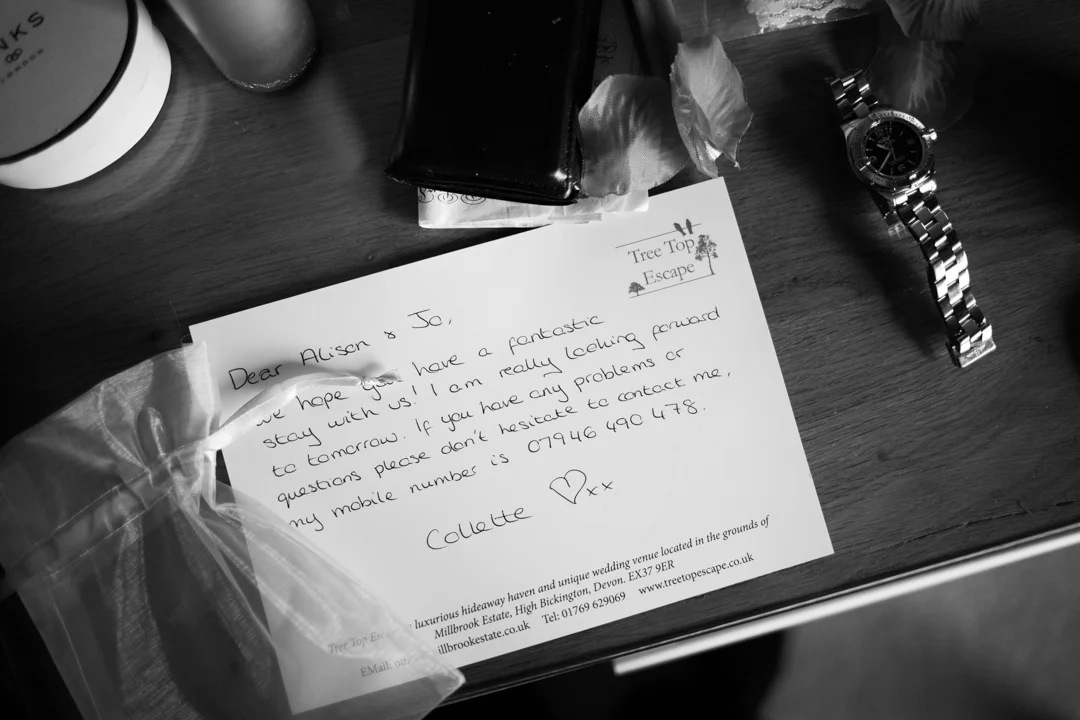 NKS
LONDON
Tree Top
Escape
Dear Alison & Jo,
we hope you have a fantastic
stay with us! I am really looking forward
to tomorrow. If you have any problems or
questions please don't hesitate to contact me,
my mobile number is 07946 490 478.
Collette xx
Tree Top luxurious hideaway haven and unique wedding venue located in the grounds of
Millbrook Estate, High Bickington, Devon. EX37 9ER
EMail: illbrookestate.co.uk Tel: 01769 629069 www.treetopescape.co.uk